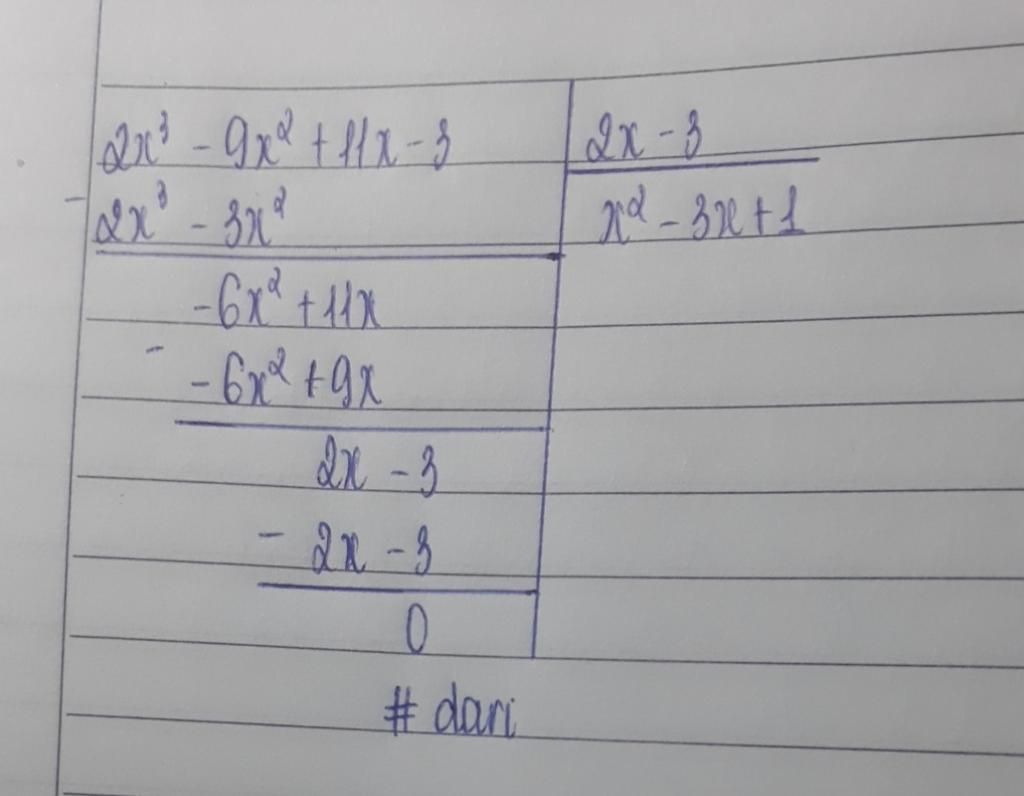 2x³ - 9x² + 11x - 3 | 2x - 3
- 2x³ - 3x² | x² - 3x + 1
-6x² + 11x
- -6x² + 9x
2x - 3
- 2x - 3
0
# dari